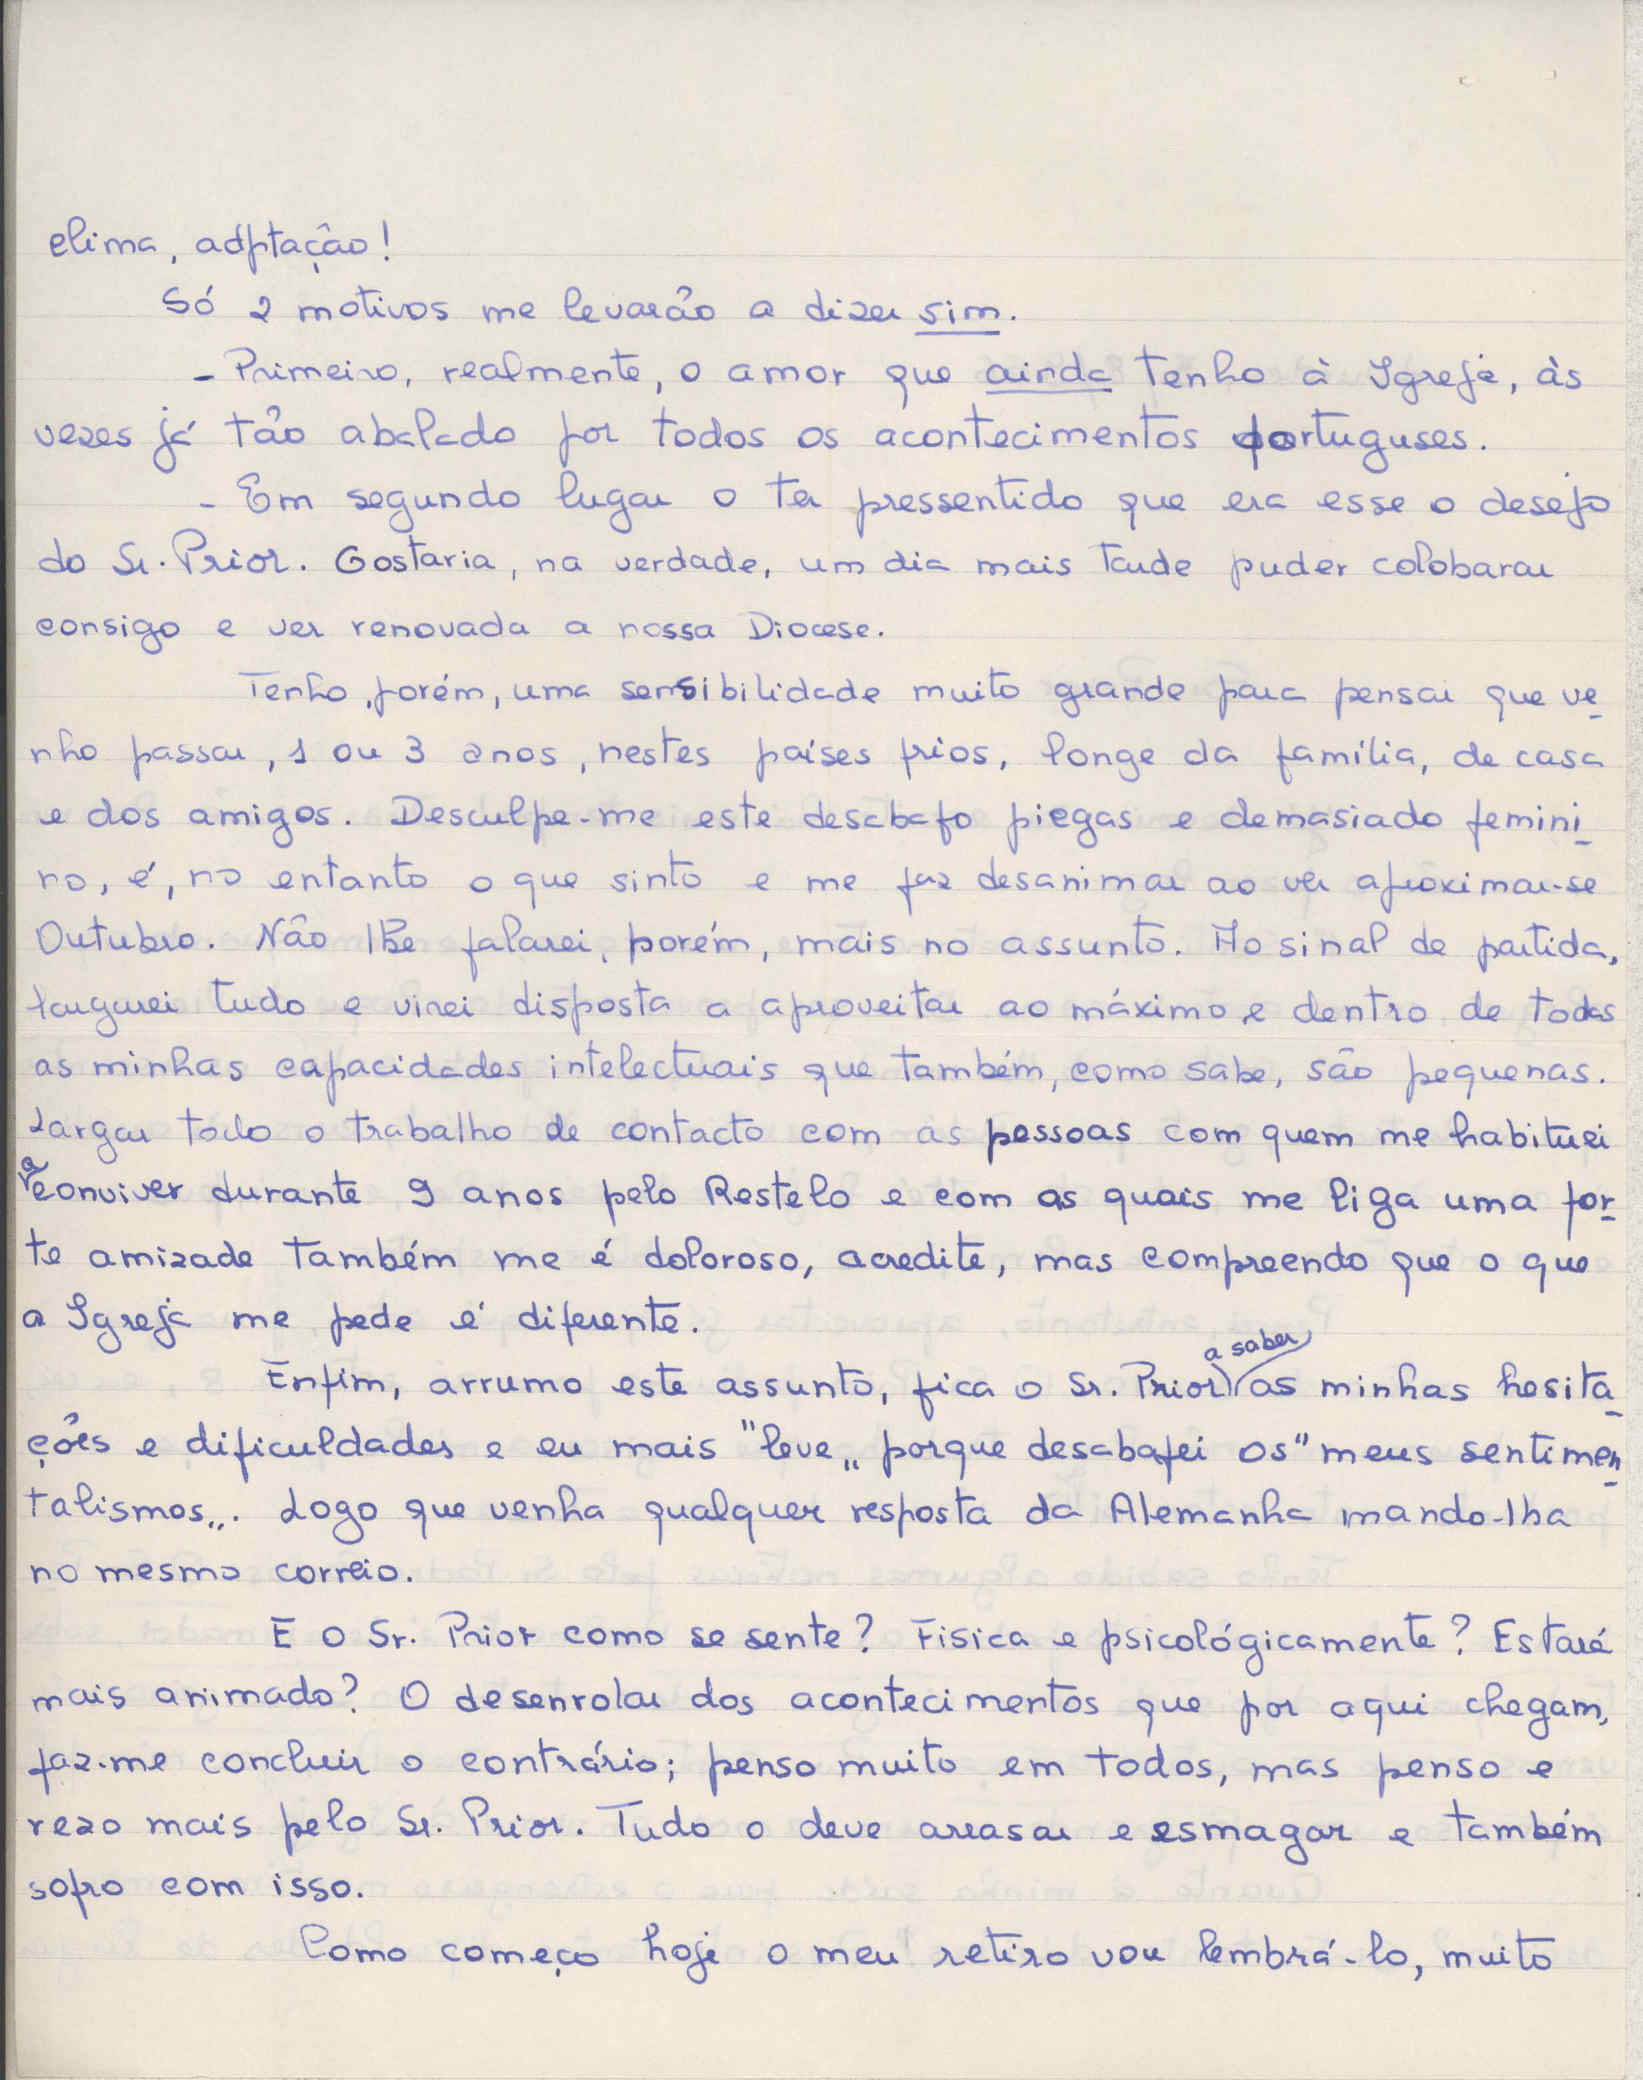 clima, adptação!
Só 2 motivos me levarão a dizer sim.
- Primeiro, realmente, o amor que ainda tenho à Igreja, às
vezes já tão abalado por todos os acontecimentos portugueses.
- Em segundo lugar o ter pressentido que era esse o desejo
do Sr. Prior. Gostaria, na verdade, um dia mais tarde puder colobarar
consigo e ver renovada a nossa Diocese.
Tenho, porém, uma sensibilidade muito grande para pensar que ve-
nho passar, 1 ou 3 anos, nestes países frios, longe da família, de casa
e dos amigos. Desculpe-me este desabafo piegas e demasiado femini-
no, é, no entanto o que sinto e me faz desanimar ao ver aproximar-se
Outubro. Não lhe falarei, porém, mais no assunto. Ao sinal de partida,
largarei tudo e virei disposta a aproveitar ao máximo e dentro de todas
as minhas capacidades intelectuais que também, como sabe, são pequenas.
Largar todo o trabalho de contacto com as pessoas com quem me habituei
a conviver durante 9 anos pelo Restelo e com as quais me liga uma for-
te amizade também me é doloroso, acredite, mas compreendo que o que
a Igreja me pede é diferente.
Enfim, arrumo este assunto, fica o Sr. Prior a saber as minhas hesita-
ções e dificuldades e eu mais "leve" porque desabafei os "meus sentimen-
talismos". Logo que venha qualquer resposta da Alemanha mando-lha
no mesmo correio.
E o Sr. Prior como se sente? Fisica e psicológicamente? Estará
mais animado? O desenrolar dos acontecimentos que por aqui chegam,
faz-me concluir o contrário; penso muito em todos, mas penso e
rezo mais pelo Sr. Prior. Tudo o deve arrasar e esmagar e também
sofro com isso.
Como começo hoje o meu retiro vou lembrá-lo, muito